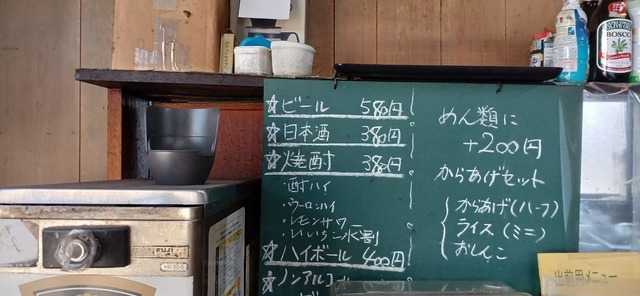 ☆ビール 580円
☆日本酒 380円
☆焼酎 380円
・酎ハイ
・ウーロンハイ
・レモンサワー
・いいちこ水割
☆ハイボール 400円
☆ノンアルコ
めん類に
+200円
からあげセット
からあげ(ハーフ)
ライス(ミニ)
おしんこ
出前用メニュー
BOSCO
FUJI